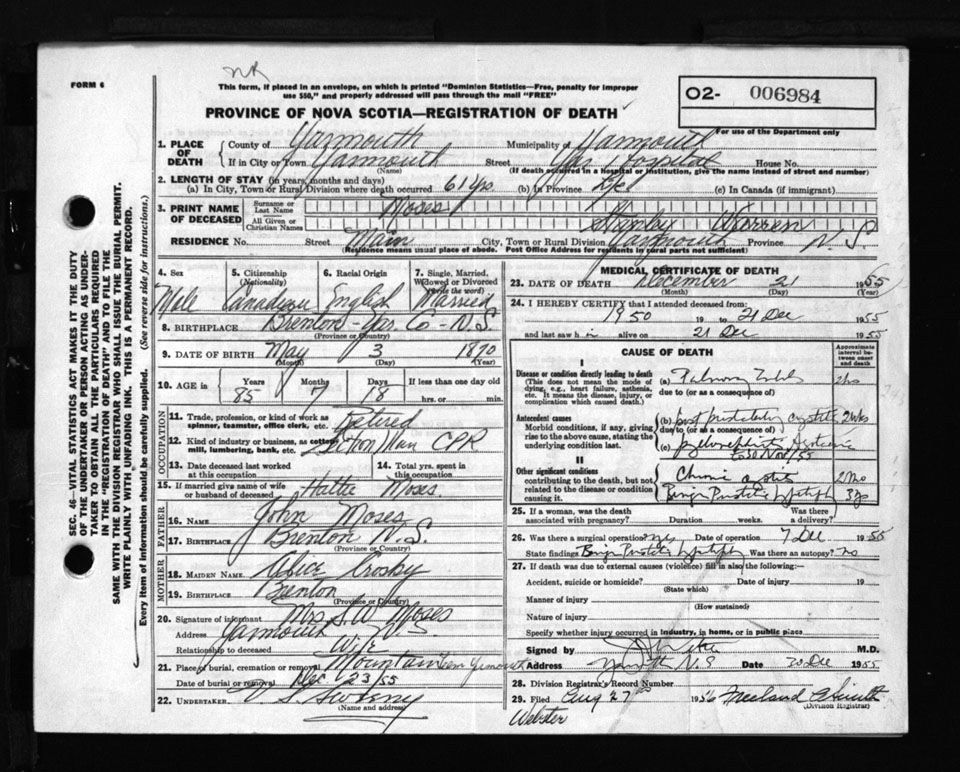 FORM 6
NK
This form, if placed in an envelope, on which is printed "Dominion Statistics—Free, penalty for improper
use $50," and properly addressed will pass through the mail "FREE"
PROVINCE OF NOVA SCOTIA—REGISTRATION OF DEATH
O2- 006984
For use of the Department only
SEC. 46—VITAL STATISTICS ACT MAKES IT THE DUTY
OF THE UNDERTAKER OR PERSON ACTING AS UNDER-
TAKER TO OBTAIN ALL THE PARTICULARS REQUIRED
IN THE "REGISTRATION OF DEATH" AND TO FILE THE
SAME WITH THE DIVISION REGISTRAR WHO SHALL ISSUE THE BURIAL PERMIT.
WRITE PLAINLY WITH UNFADING INK. THIS IS A PERMANENT RECORD.
Every item of information should be carefully supplied. (See reverse side for instructions.)
1. PLACE OF DEATH
County of Yarmouth Municipality of Yarmouth
If in City or Town Yarmouth Street Yar Hospital House No.
(Name) (If death occurred in a Hospital or Institution, give the name instead of street and number)
2. LENGTH OF STAY (in years, months and days)
(a) In City, Town or Rural Division where death occurred 61 yrs. (b) in Province Life (c) In Canada (if immigrant)
3. PRINT NAME OF DECEASED
Surname or Last Name Moses
All Given or Christian Names Stanley Warren
RESIDENCE No. Street Main City, Town or Rural Division Yarmouth Province N.S.
(Residence means usual place of abode. Post Office Address for residents in rural parts not sufficient)
4. Sex Male
5. Citizenship (Nationality) Canadian
6. Racial Origin English
7. Single, Married, Widowed or Divorced (Write the word) Married
8. BIRTHPLACE Brenton - Yar. Co - N.S.
(Province or Country)
9. DATE OF BIRTH May 3 1870
(Month) (Day) (Year)
10. AGE in Years 85 Months 7 Days 18 If less than one day old hrs. or min.
OCCUPATION
11. Trade, profession, or kind of work as spinner, teamster, office clerk, etc. Retired
12. Kind of industry or business, as cotton mill, lumbering, bank, etc. Section Man CPR
13. Date deceased last worked at this occupation
14. Total yrs. spent in this occupation
15. If married give name of wife or husband of deceased Hattie Moses
FATHER
16. NAME John Moses
17. BIRTHPLACE Brenton N.S.
(Province or Country)
MOTHER
18. MAIDEN NAME Alice Crosby
19. BIRTHPLACE Brenton
(Province or Country)
20. Signature of informant Mrs S.W. Moses
Address Yarmouth N.S.
Relationship to deceased Wife
21. Place of burial, cremation or removal Mountain Cem Yarmouth
Date of burial or removal Dec 23/55
22. UNDERTAKER Sweeny
(Name and address)
MEDICAL CERTIFICATE OF DEATH
23. DATE OF DEATH December 21 1955
(Month) (Day) (Year)
24. I HEREBY CERTIFY that I attended deceased from:
1950 19 to 21 Dec 1955
and last saw h im alive on 21 Dec 1955
CAUSE OF DEATH
Approximate interval between onset and death
I
Disease or condition directly leading to death
(This does not mean the mode of dying, e.g., heart failure, asthenia, etc. It means the disease, injury, or complication which caused death.)
(a) Pulmonary 2 hrs
due to (or as a consequence of)
Antecedent causes
Morbid conditions, if any, giving rise to the above cause, stating the underlying condition last.
(b) 2 wks
due to (or as a consequence of)
(c) pyelonephritis
II
Other significant conditions
contributing to the death, but not related to the disease or condition causing it.
Chronic cystitis 2 mo
Benign Prostatic 3 yrs
25. If a woman, was the death associated with pregnancy? Duration weeks. Was there a delivery?
26. Was there a surgical operation? yes Date of operation 7 Dec 1955
State findings Benign Prostatic Was there an autopsy? no
27. If death was due to external causes (violence) fill in also the following:—
Accident, suicide or homicide? Date of injury 19
(State which)
Manner of injury
(How sustained)
Nature of injury
Specify whether injury occurred in industry, in home, or in public place
Signed by M.D.
Address Yarmouth N.S Date 30 Dec 1955
28. Division Registrar's Record Number
29. Filed Aug 27 1956 Freeland
(Division Registrar)
Webster